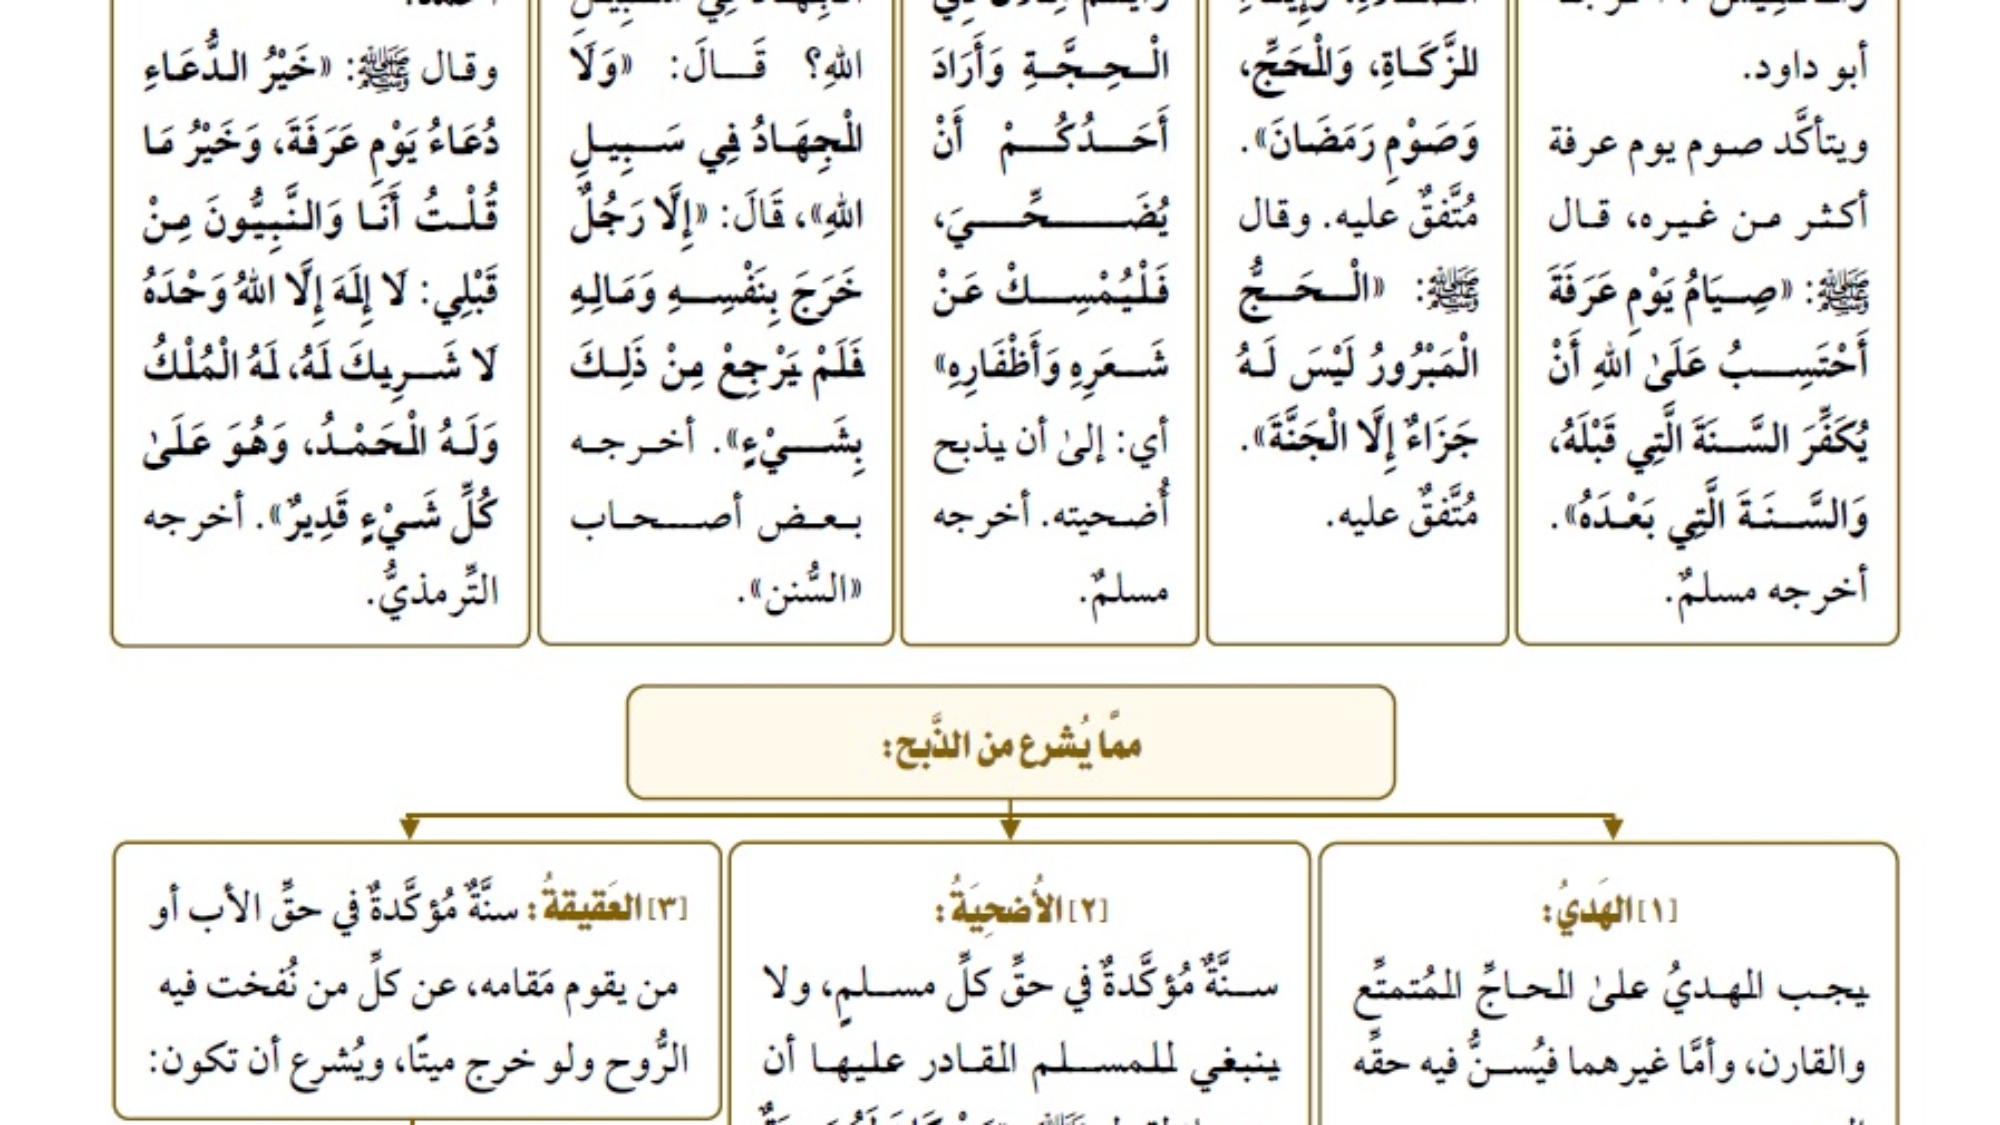 أبو داود.
ويتأكَّد صوم يوم عرفة
أكثر من غيره، قال
ﷺ: «صِيَامُ يَوْمِ عَرَفَةَ
أَحْتَسِبُ عَلَىٰ اللهِ أَنْ
يُكَفِّرَ السَّنَةَ الَّتِي قَبْلَهُ،
وَالسَّنَةَ الَّتِي بَعْدَهُ».
أخرجه مسلمٌ.
للزَّكَاةِ، وَالْحَجِّ،
وَصَوْمِ رَمَضَانَ».
مُتَّفقٌ عليه. وقال
ﷺ: «الْحَجُّ
الْمَبْرُورُ لَيْسَ لَهُ
جَزَاءٌ إِلَّا الْجَنَّةَ».
مُتَّفقٌ عليه.
الْحِجَّةِ وَأَرَادَ
أَحَدُكُمْ أَنْ
يُضَحِّيَ،
فَلْيُمْسِكْ عَنْ
شَعَرِهِ وَأَظْفَارِهِ»
أي: إلىٰ أن يذبح
أُضحيته. أخرجه
مسلمٌ.
اللهِ؟ قَالَ: «وَلَا
الْجِهَادُ فِي سَبِيلِ
اللهِ»، قَالَ: «إِلَّا رَجُلٌ
خَرَجَ بِنَفْسِهِ وَمَالِهِ
فَلَمْ يَرْجِعْ مِنْ ذَلِكَ
بِشَيْءٍ». أخرجه
بعض أصحاب
«السُّنن».
وقال ﷺ: «خَيْرُ الدُّعَاءِ
دُعَاءُ يَوْمِ عَرَفَةَ، وَخَيْرُ مَا
قُلْتُ أَنَا وَالنَّبِيُّونَ مِنْ
قَبْلِي: لَا إِلَهَ إِلَّا اللهُ وَحْدَهُ
لَا شَرِيكَ لَهُ، لَهُ الْمُلْكُ
وَلَهُ الْحَمْدُ، وَهُوَ عَلَىٰ
كُلِّ شَيْءٍ قَدِيرٌ». أخرجه
التِّرمذيُّ.
ممَّا يُشرع من الذَّبح:
[١] الهَديُ:
يجب الهديُ علىٰ الحاجِّ المُتمتِّع
والقارن، وأمَّا غيرهما فيُسنُّ فيه حقِّه
[٢] الأُضحِيَةُ:
سنَّةٌ مُؤكَّدةٌ في حقِّ كلِّ مسلمٍ، ولا
ينبغي للمسلم القادر عليها أن
[٣] العَقيقةُ: سنَّةٌ مُؤكَّدةٌ في حقِّ الأب أو
من يقوم مَقامه، عن كلِّ من نُفخت فيه
الرُّوح ولو خرج ميتًا، ويُشرع أن تكون: